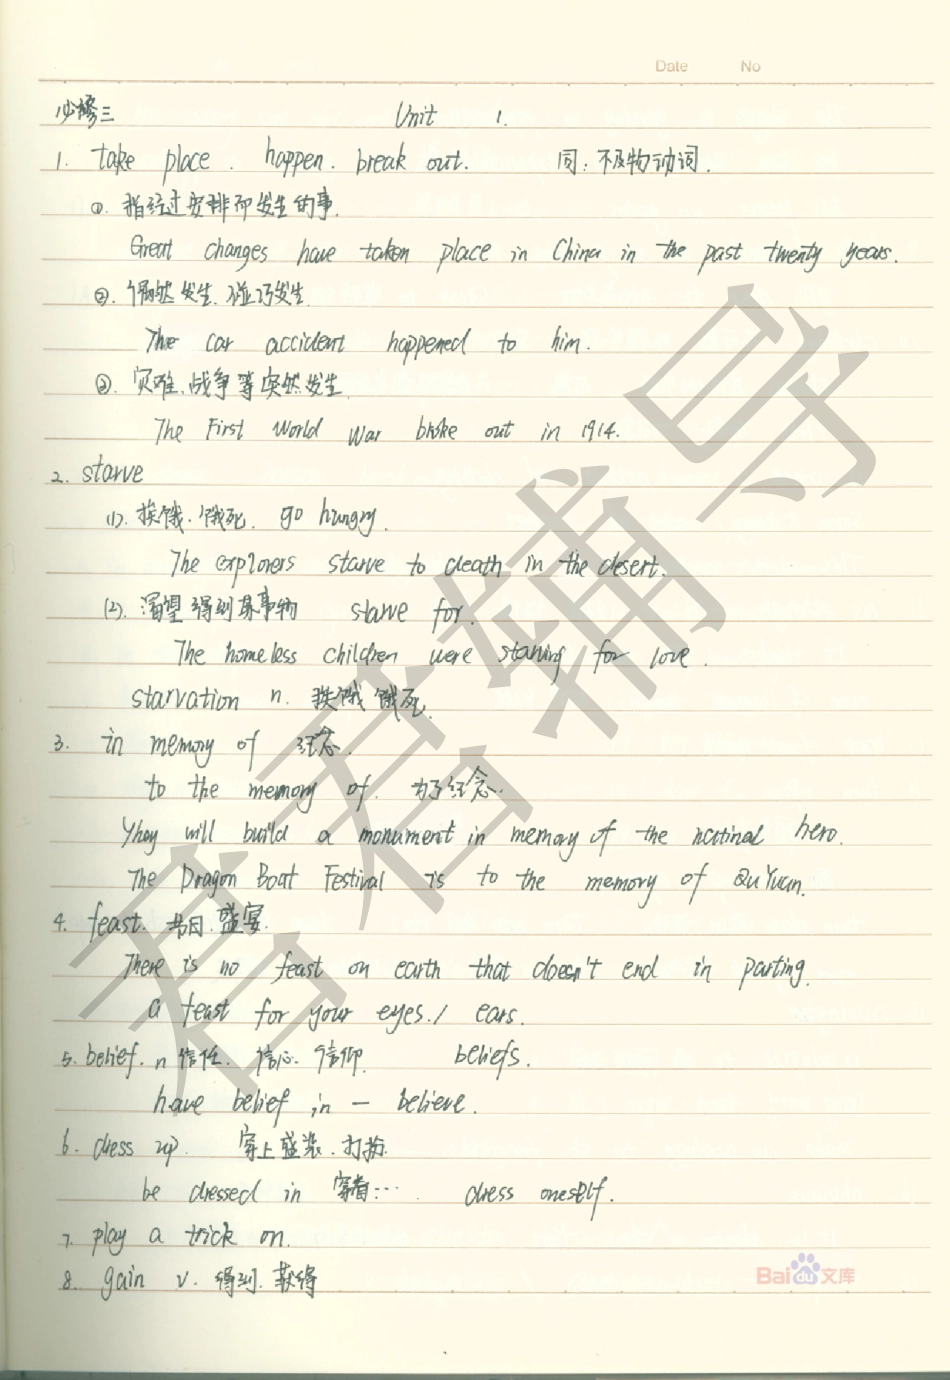 Date No
必修三 Unit 1.
1. take place . happen . break out. 同：不及物动词.
①. 指经过安排而发生的事.
Great changes have taken place in China in the past twenty years.
②. 偶然发生. 碰巧发生.
The car accident happened to him.
③. 灾难、战争等突然发生.
The First World War broke out in 1914.
2. starve
(1). 挨饿. 饿死. go hungry.
The explorers starve to death in the desert.
(2). 渴望得到某事物 starve for.
The homeless children were starving for love.
starvation n. 挨饿 饿死.
3. in memory of 纪念.
to the memory of. 为了纪念.
They will build a monument in memory of the national hero.
The Dragon Boat Festival is to the memory of Qu Yuan.
4. feast. 节日. 盛宴.
There is no feast on earth that doesn't end in parting.
a feast for your eyes./ ears.
5. belief. n 信任. 信心. 信仰. beliefs.
have belief in — believe.
6. dress up. 穿上盛装. 打扮.
be dressed in 穿着…… dress oneself.
7. play a trick on.
8. gain v. 得到. 获得
君君辅导
Baidu文库